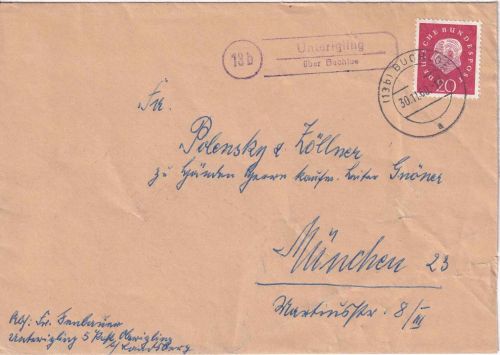 13b
Unterigling
über Buchloe
DEUTSCHE BUNDESPOST
20
(13b) BUCHLOE
30.11.60
a
Fa.
Polensky & Zöllner
zu Händen Herrn kaufm. Leiter Gnöner
München 23
Martiusstr. 8/III
Abs: Fr.
Unterigling 5 Post Oberigling
Landsberg